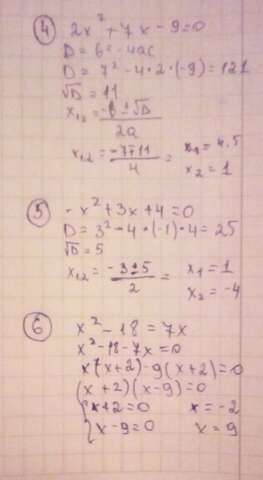 ④ 2x² + 7x - 9 = 0
D = b² - 4ac
D = 7² - 4 * 2 * (-9) = 121
√D = 11
x₁,₂ = (-b ± √D) / 2a
x₁,₂ = (-7 ± 11) / 4 = x₁ = 4.5
x₂ = 1
⑤ -x² + 3x + 4 = 0
D = 3² - 4 * (-1) * 4 = 25
√D = 5
x₁,₂ = (-3 ± 5) / 2 = x₁ = 1
x₂ = -4
⑥ x² - 18 = 7x
x² - 18 - 7x = 0
x * (x + 2) - 9(x + 2) = 0
(x + 2)(x - 9) = 0
{ x + 2 = 0 x = -2
{ x - 9 = 0 x = 9